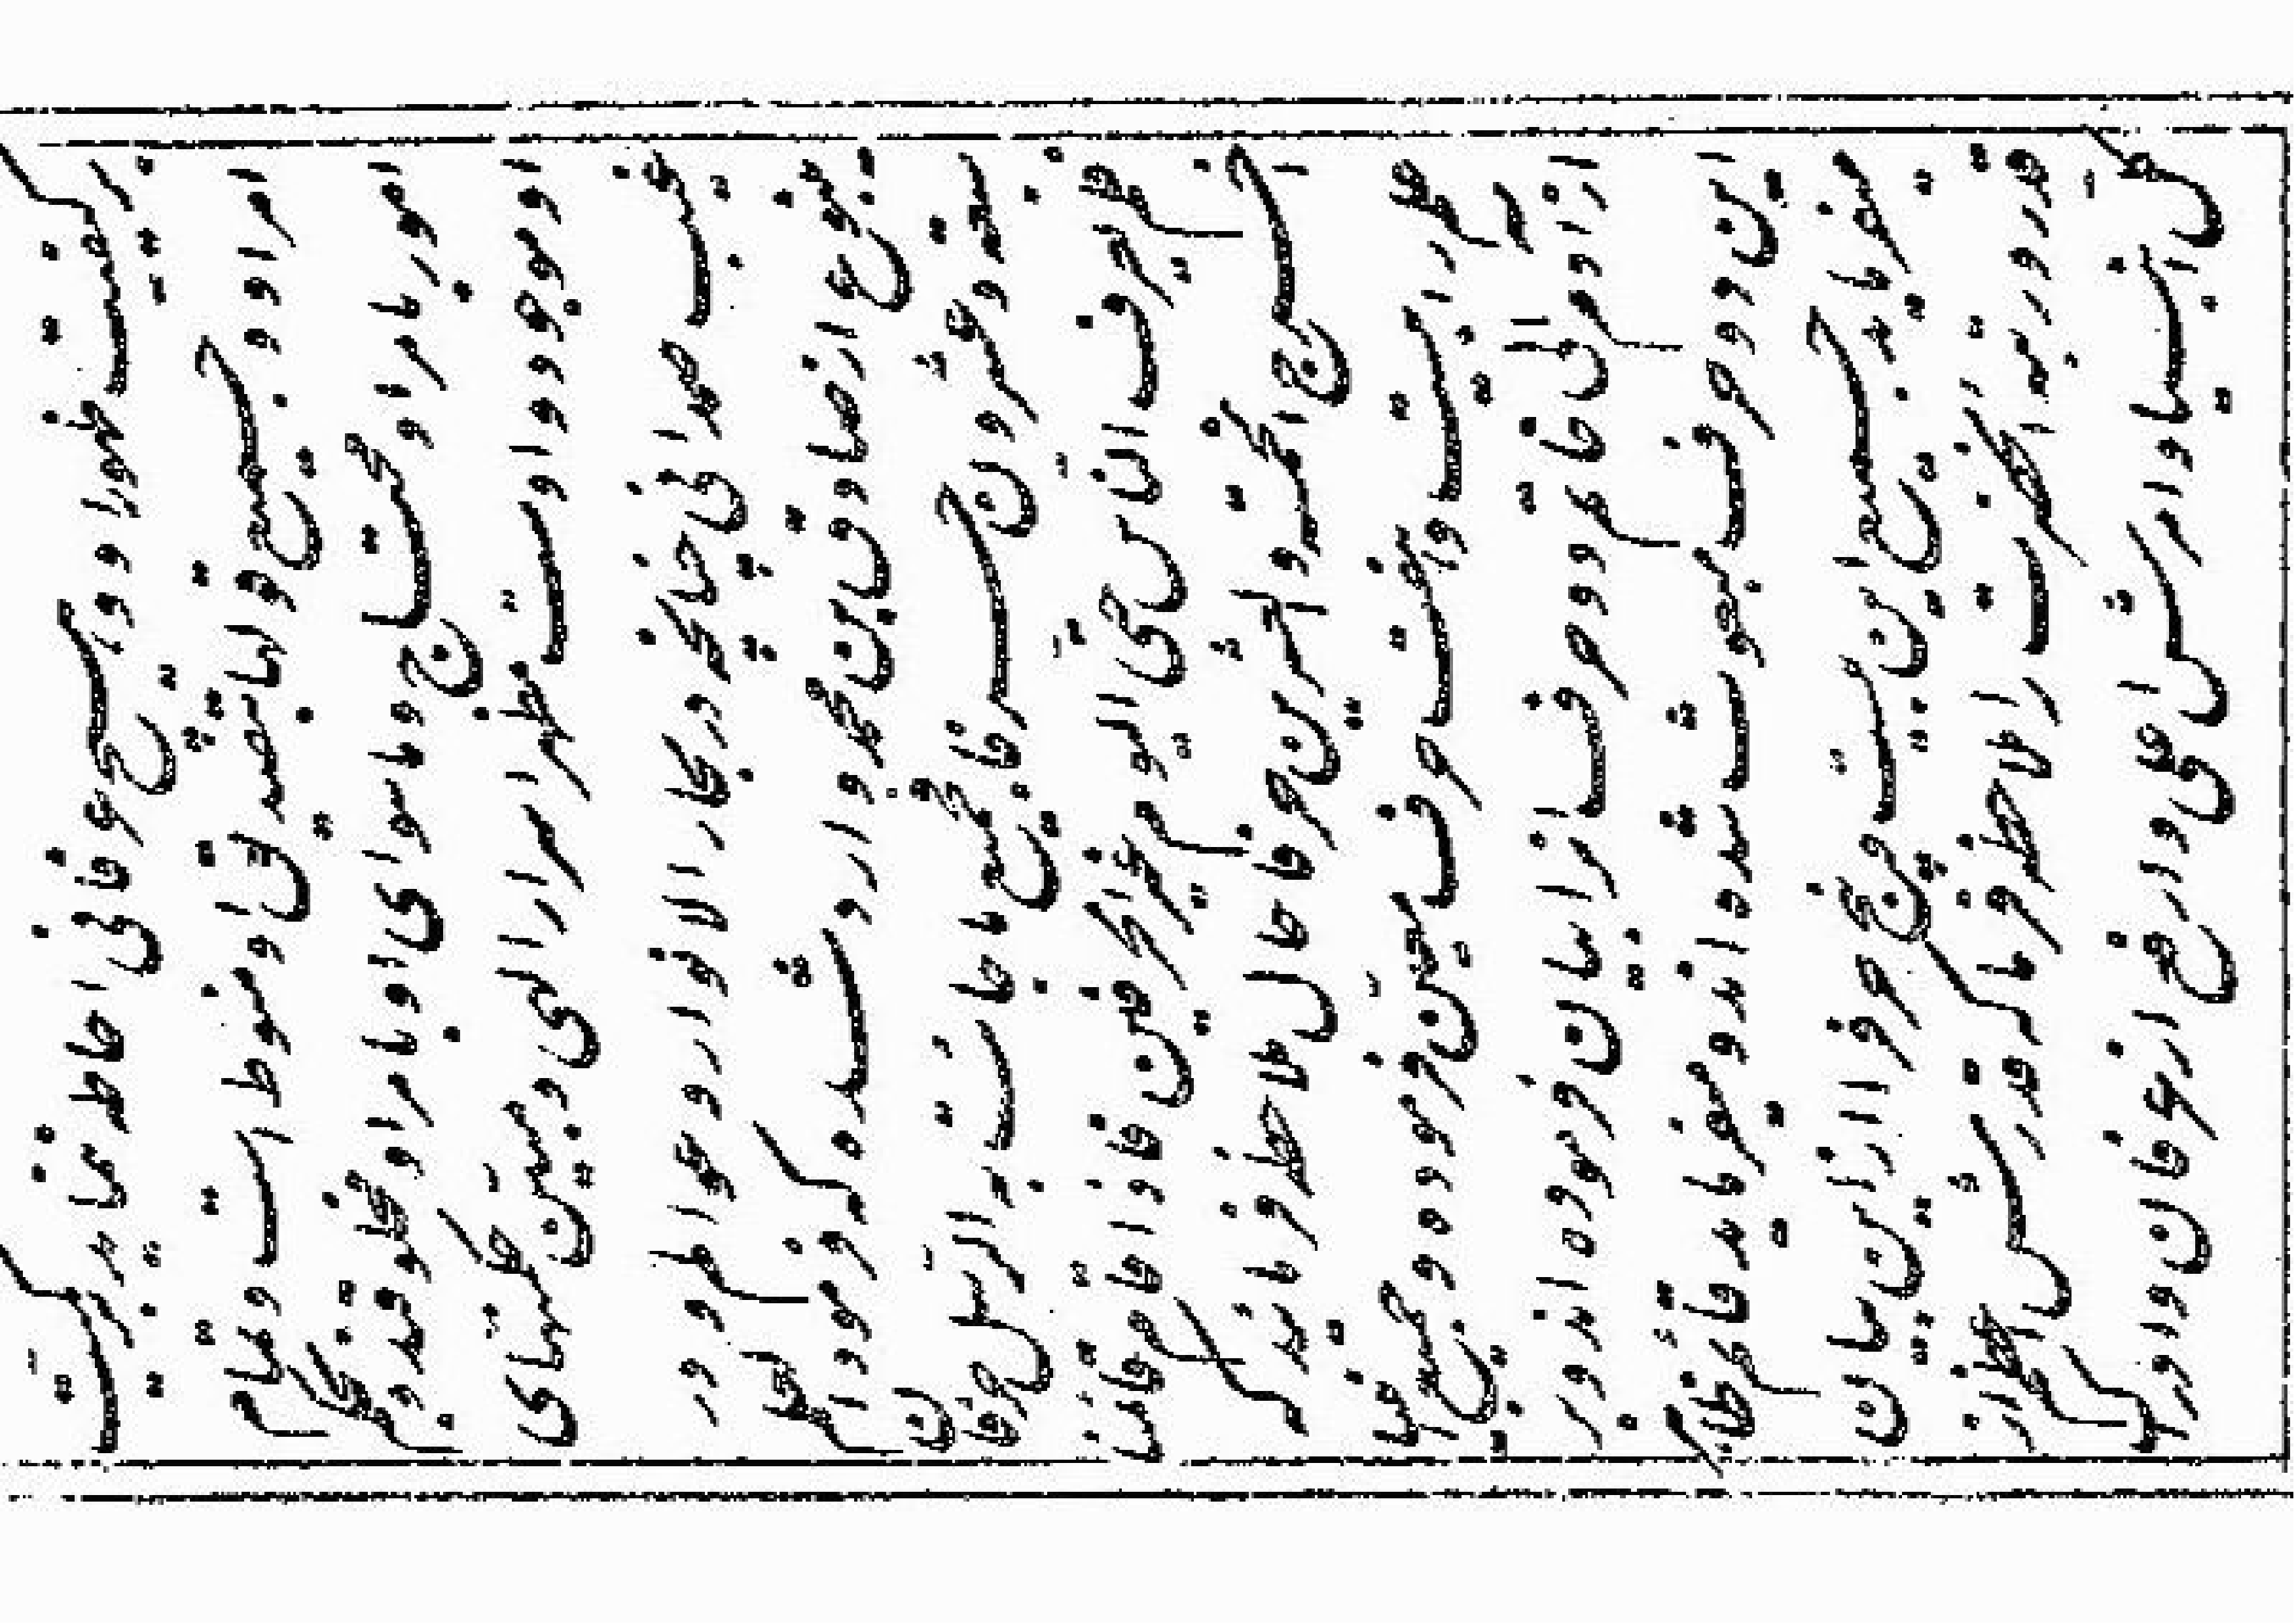 امر او و جمیع قولها بتصدیق او منوط است و تمام
او موجود و اوست مظهر اسرار الهی و مبین حکمتهای
غیب صمدانی چنانچه در بحار الانوار و عوالم و در
ینبوع از صادق بن محمد وارد شده که فرمود العلم
سبعة و عشرون حرفا فجمیع ما جائت به الرسل حرفان
فلم یعرف الناس حتی الیوم غیر الحرفین فاذا قام قائمنا
اخرج الخمسة و العشرین حرفا حال ملاحظه فرمائید که
علم را بیست و هفت حرف معین فرموده و جمیع انبیا
از آدم الی خاتم دو حرف از انرا بیان فرموده اند و بر
این دو حرف مبعوث شده اند و میفرماید قائم ظاهر
میفرماید جمیع این بیست و پنج حرف را ازین بیان
قدر و رتبه آنحضرت را ملاحظه فرما که قدرش اعظم از
کل انبیا و امرش اعلی و ارفع از عرفان و ادراک